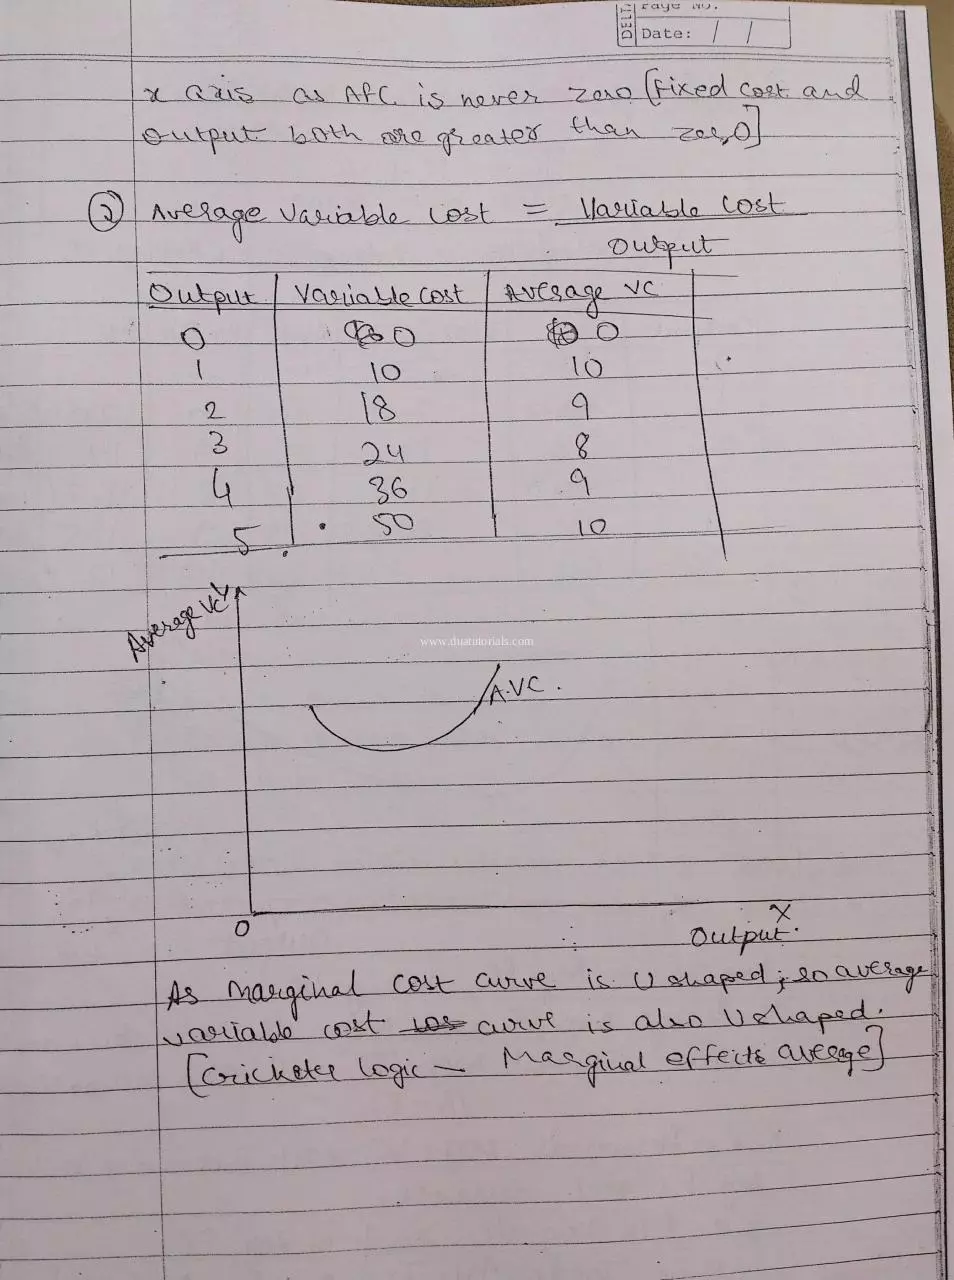 DELT
Page No.
Date: / /
x axis as AFC is never zero [Fixed cost and
output both are greater than zero]
② Average Variable Cost = Variable Cost
Output
Output Variable Cost Average VC
0 0 0
1 10 10
2 18 9
3 24 8
4 36 9
5 50 10
Average VC Y
www.duatutorials.com
A.VC.
0
X
Output.
As marginal cost curve is U shaped; so average
variable cost curve is also U shaped.
[Cricketer logic - Marginal effects average]